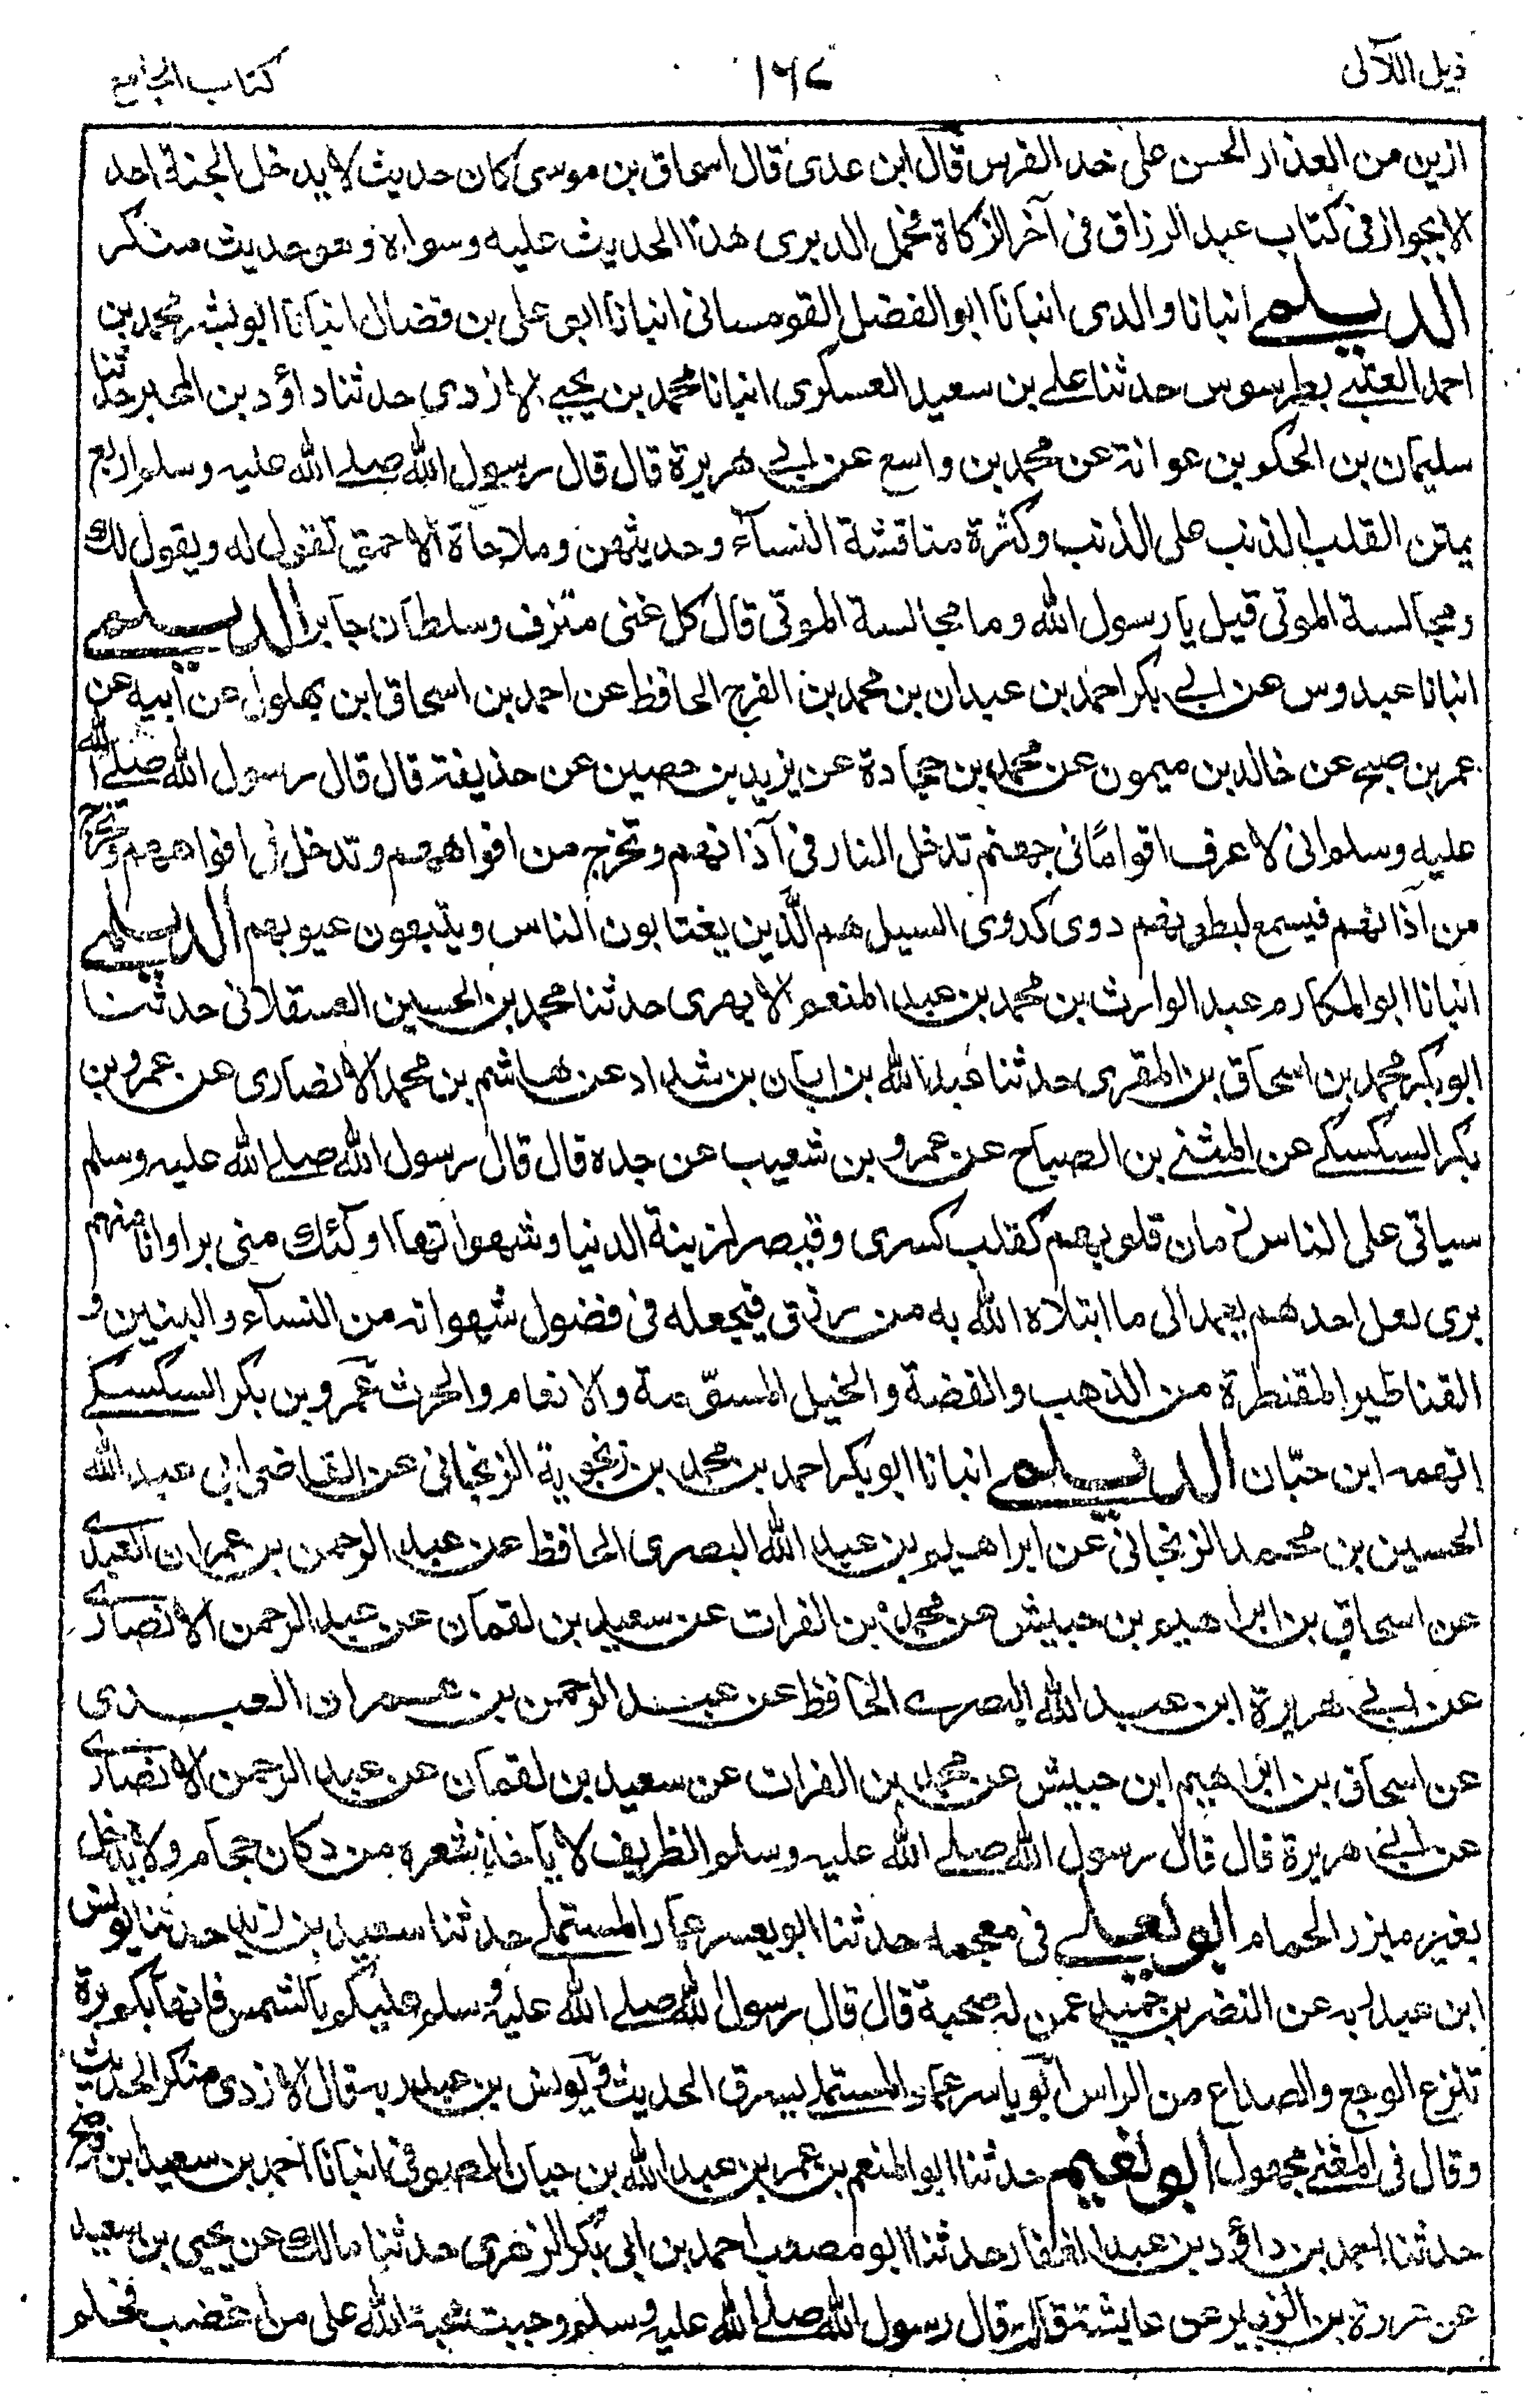 ذيل اللآلى ١٦٧ كتاب الجامع
ازين من العذار الحسن على خد الفرس قال ابن عدى قال اسحاق بن موسى كان حديث لا يدخل الجنة احد
الا بجواز فى كتاب عبد الرزاق فى آخر الزكاة فحمل الدبرى هذا الحديث عليه وسواه وهو حديث منكر
الديلمى انبانا والدى انبانا ابو الفضل القومسانى انبانا ابو على بن فضال انبانا ابو بشر محمد بن
احمد العتبى بطرسوس حدثنا على بن سعيد العسكرى انبانا محمد بن يحيى الازدى حدثنا داؤد بن المحبر حدثنا
سليمان بن الحكم بن عوانة عن محمد بن واسع عن ابى هريرة قال قال رسول الله صلى الله عليه وسلم اربع
يمتن القلب الذنب على الذنب وكثرة مناقشة النسآء وحديثهن وملاحاة الاحمق تقول له ويقول لك
ومجالسة الموتى قيل يا رسول الله وما مجالسة الموتى قال كل غنى متزف وسلطان جابر الديلمى
انبانا عبدوس عن ابى بكر احمد بن عبدان بن محمد بن الفرج الحافظ عن احمد بن اسحاق ابن بهلول عن ابيه عن
عمر بن صبح عن خالد بن ميمون عن محمد بن جحادة عن يزيد بن حصين عن حذيفة قال قال رسول الله صلى الله
عليه وسلم انى لاعرف اقواما فى جهنم تدخل النار فى آذانهم وتخرج من افواههم وتدخل فى افواههم وتخرج
من آذانهم فيسمع لبطونهم دوى كدوى السيل هم الذين يغتابون الناس ويتبعون عيوبهم الديلمى
انبانا ابو المكارم عبد الوارث بن محمد بن عبد المنعم الابهرى حدثنا محمد بن الحسين العسقلانى حدثنا
ابو بكر محمد بن اسحاق بن المقرى حدثنا عبد الله بن ابان بن شداد عن هاشم بن محمد الانصارى عن عمرو بن
بكر السكسكى عن المثنى بن الصباح عن عمرو بن شعيب عن جده قال قال رسول الله صلى الله عليه وسلم
سياتى على الناس زمان قلوبهم كقلب كسرى وقيصر لزينة الدنيا وشهواتها اوكئك منى براوانا منهم
برى لعل احدهم يعمد الى ما ابتلاه الله به من رزق فيجعله فى فضول شهواته من النسآء والبنين و
القناطير المقنطرة من الذهب والفضة والخيل المسوّمة والانعام والحرث عمرو بن بكر السكسكى
اتهمه ابن حبّان الديلمى انبانا ابو بكر احمد بن محمد بن زنجوية الزنجانى عن القاضى ابى عبد الله
الحسين بن محمد الزنجانى عن ابراهيم بن عبد الله البصرى الحافظ عن عبد الرحمن بن عمران العبدى
عن اسحاق بن ابراهيم بن حبيش عن محمد بن الفرات عن سعيد بن لقمان عن عبد الرحمن الانصارى
عن ابى هريرة ابن عبد الله البصرى الحافظ عن عبد الرحمن بن عمران العبدى
عن اسحاق بن ابراهيم ابن حبيش عن محمد بن الفرات عن سعيد بن لقمان عن عبد الرحمن الانصارى
عن ابى هريرة قال قال رسول الله صلى الله عليه وسلم الظريف لا ياخذ شعره من دكان حجام ولا يدخل
بغير ميزر الحمام ابو يعلى فى معجمه حدثنا ابو يعسر عمار المستملى حدثنا سعيد بن زيد حدثنا يونس
ابن عبد ربه عن النضر بن حميد عمن له صحبة قال قال رسول الله صلى الله عليه وسلم عليكم بالشمس فانها
تنزع الوجع والصداع من الراس ابو ياسر عمار المستملى يسرق الحديث ويونس بن عبد ربه قال الازدى منكر الحديث
وقال فى المغنى مجهول ابو نعيم حدثنا ابو المنعم بن عمر بن عبد الله بن حيان المصوفى انبانا احمد بن سعيد ابن فرضخ
حدثنا احمد بن داؤد بن عبد الغفار حدثنا ابو مصعب احمد بن ابى بكر الزهرى حدثنا مالك عن يحيى بن سعيد
عن عروة بن الزبير عن عايشة قالت قال رسول الله صلى الله عليه وسلم وجبت محبة الله على من اغضب فحلم